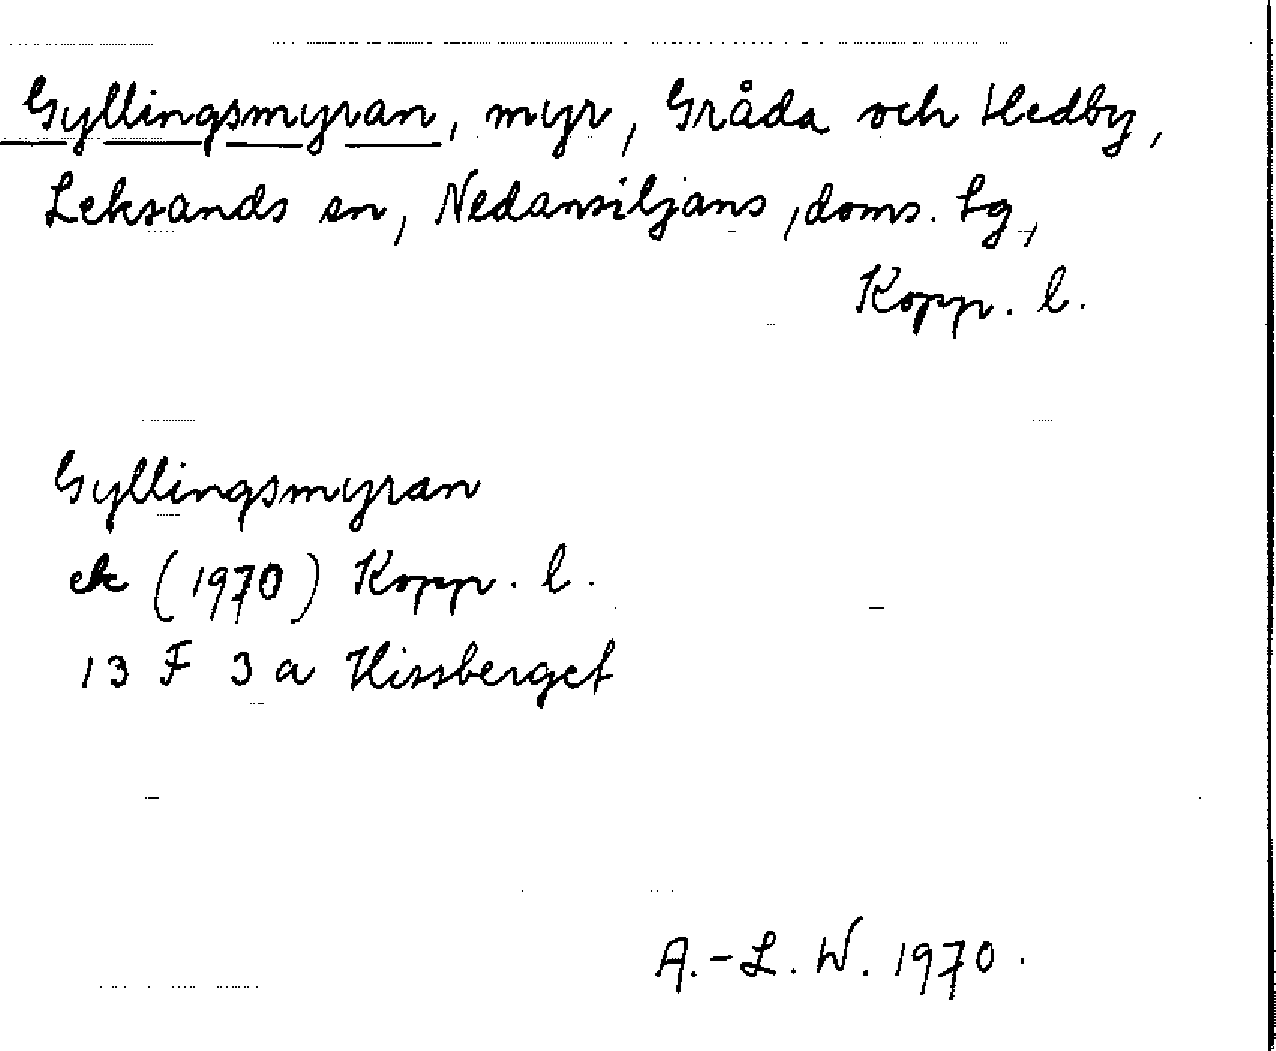 Gyllingsmyran, myr, Gråda och Hedby,
Leksands sn, Nedansiljans, doms. tg,
Kopp. l.
Gyllingsmyran
ek (1970) Kopp. l.
13 F 3 a Hissberget
A.-L. W. 1970.